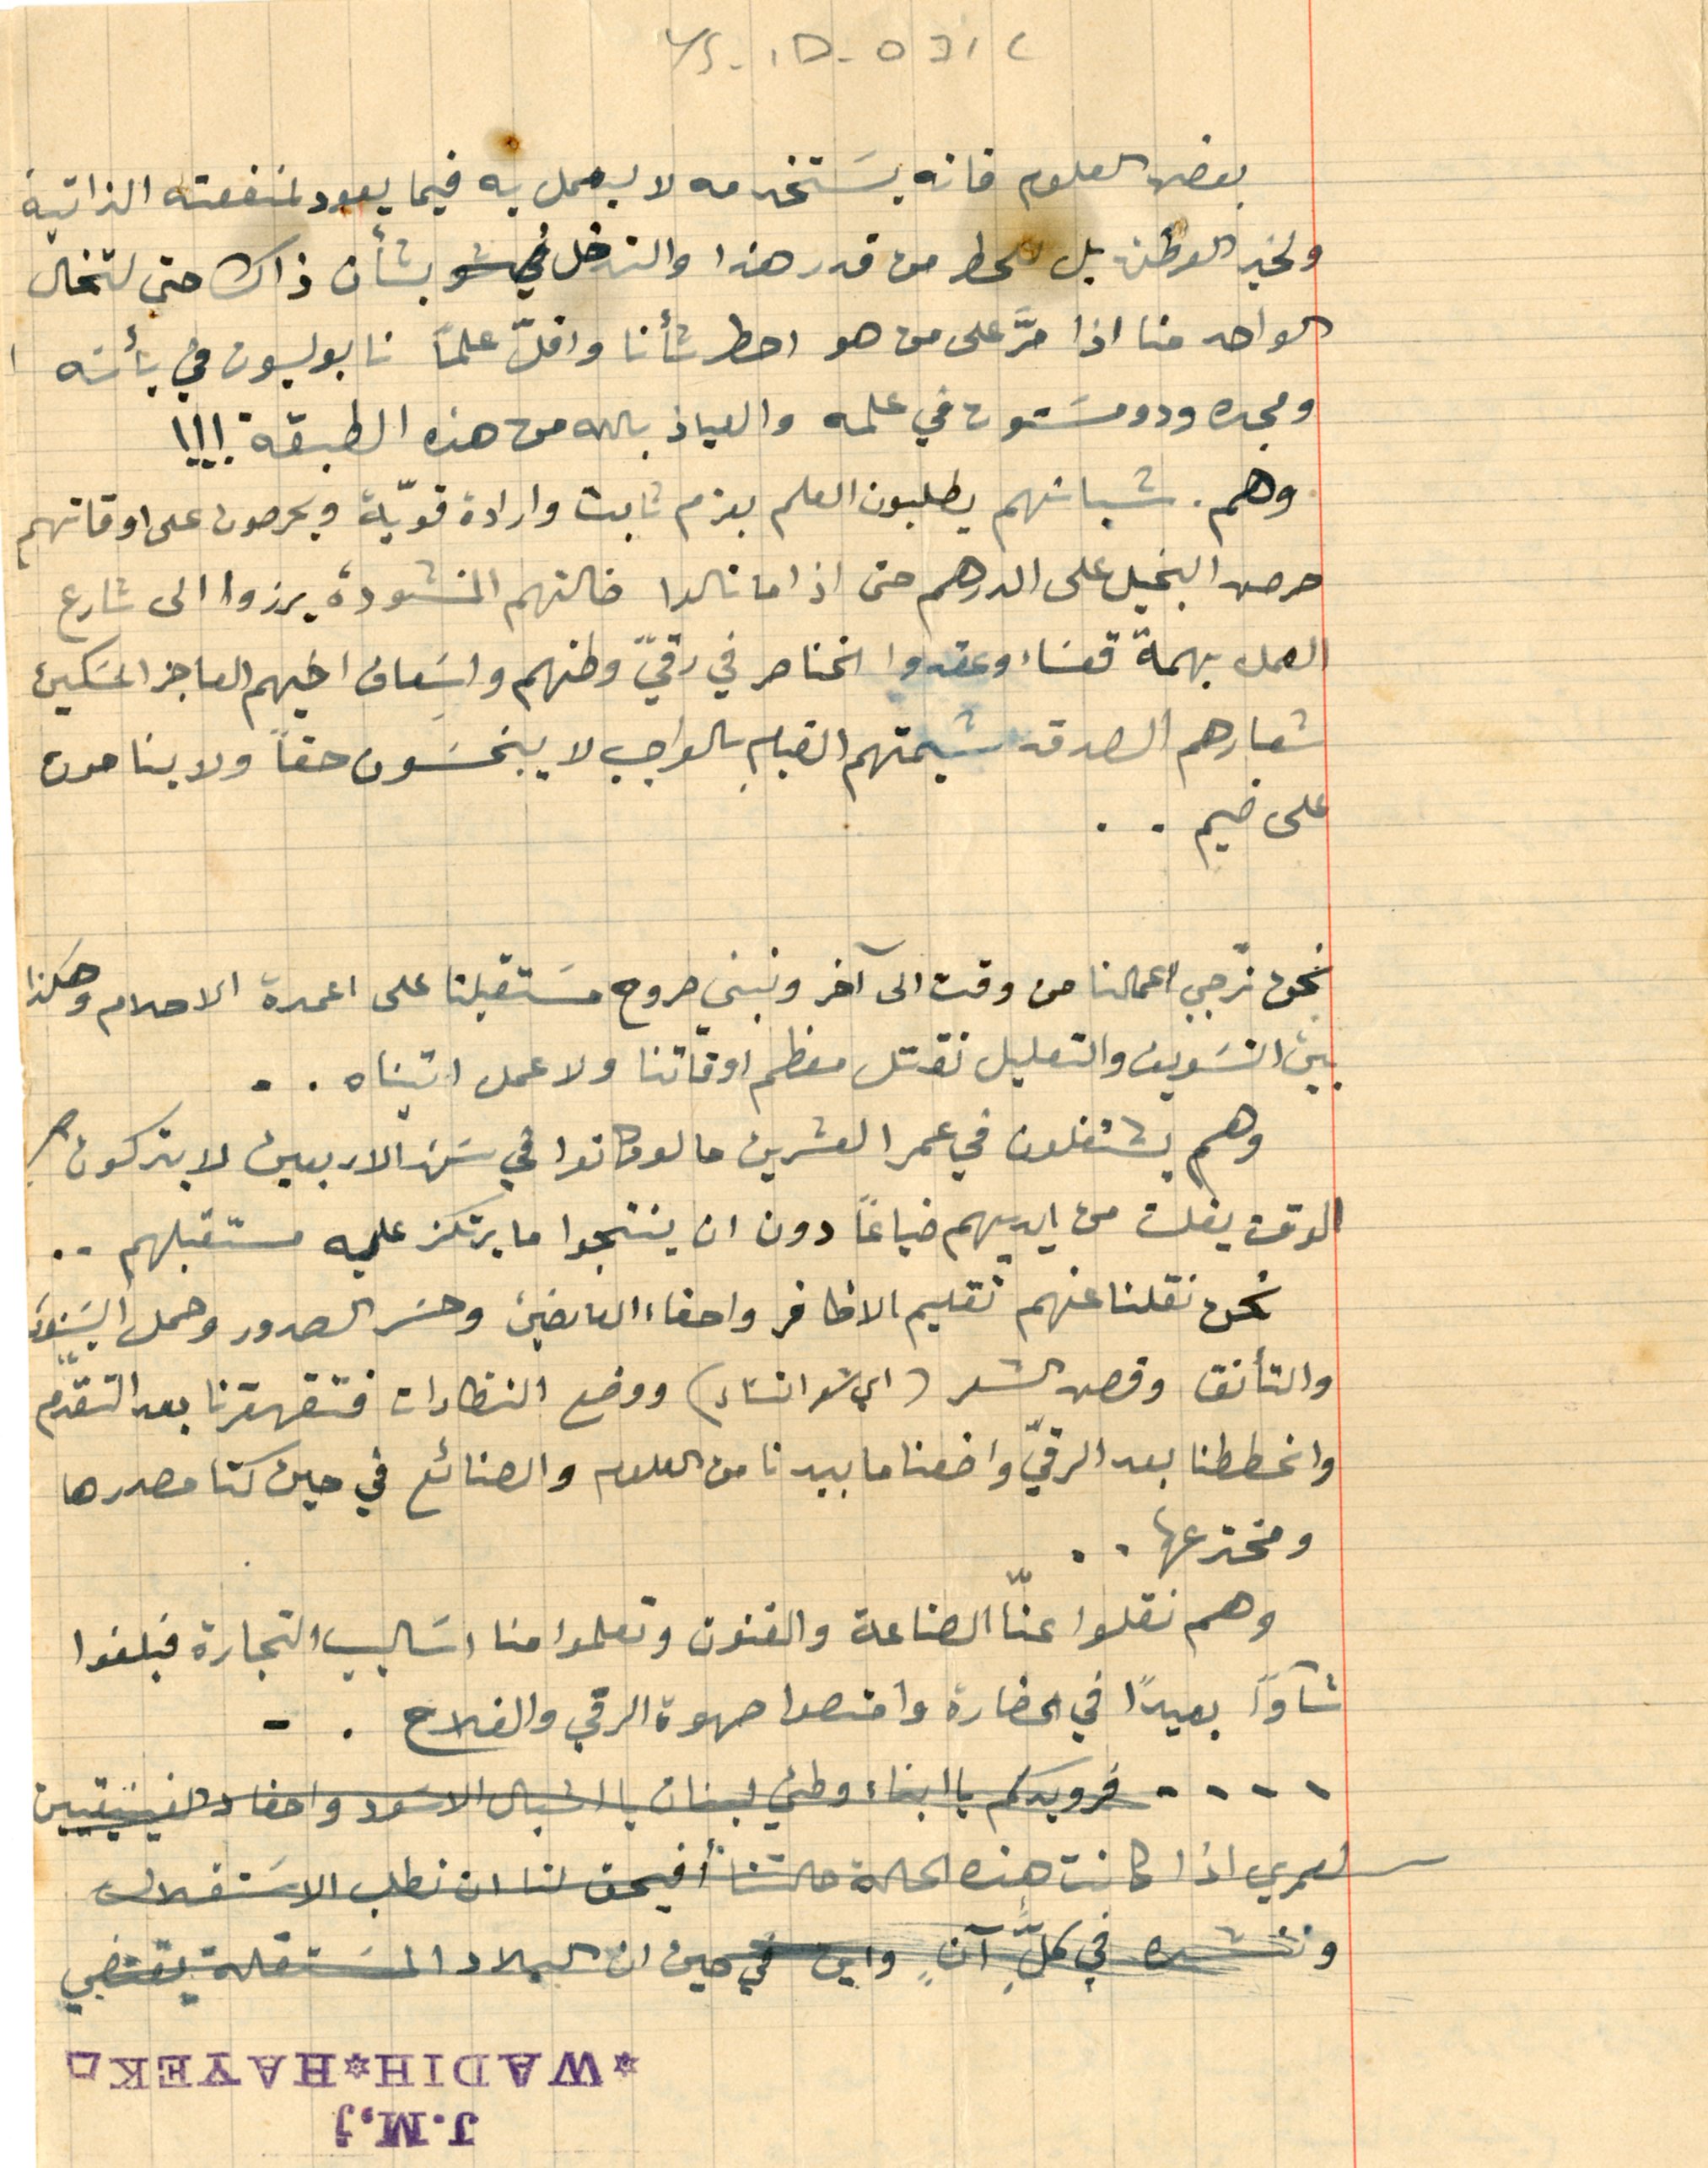 بعض العلوم فانه يستخدمه لا ليعمل به فيما يعود لمنفعته الذاتية
ولخير الوطن بل للحط من قدر هذا والتدخل في شو بشأن ذاك حتى لتخال
الواحد منا اذا مرَّ على من هو احط شأنا واقلّ علماً نابوليون في بأسه
ومجده ودوموستون في علمه والعياذ بالله من هذه الطبقة !!!
وهم . شبانهم يطلبون العلم بعزم ثابت وارادة قويّة ويحرصون على اوقاتهم
حرص البخيل على الدرهم حتى اذا ما نالوا ضالتهم المنشودة برزوا الى شارع
العمل بهمة قعساء وعقدوا الخناصر في رقيّ وطنهم واسعاف اخيهم العاجز المسكين
شعارهم الصدق شيمتهم القيام بالواجب لا يبخسون حقاً ولا ينامون
على ضيم . .
نحن نرجي اعمالنا من وقت الى آخر ونبني صروح مستقبلنا على اعمدة الاحلام وهكذا
بين التسويف والتعليل نقتل معظم اوقاتنا ولا عمل اتيناه . .
وهم يشتغلون في عمر العشرين ما لو كانوا في سن الاربعين لا يتركون
الوقت يفلت من ايديهم ضياعاً دون ان ينتجوا ما يرتكز عليه مستقبلهم ..
نحن نقلنا عنهم تقليم الاظافر واحفاء العارضين وحسر الصدور وحمل
والتأنق وقص الشعر (اي شعر النساء) ووضع النظارات فتقهقرنا بعد التقدّم
وانحططنا بعد الرقيّ واضعنا ما بيدنا من العلوم والصنائع في حين كنا مصدرها
ومخترعها . .
وهم نقلوا عنّا الصناعة والفنون وتعلموا منا اساليب التجارة فبلغوا
شأوًا بعيدًا في الحضارة وامتطوا صهوة الرقي والفلاح . -
- - - - فرويدكم يا ابناء وطني لبنان يا اشبال الاسود واحفاد الفينيقيين
لعمري اذا كانت هذه الحالة حالتنا أفيحق لنا ان نطلب الاستقلال
وننشده في كلِّ آنٍ واين في حين ان البلاد المستقلة يقتضي
*WADIH*HAYEK
J.M.j